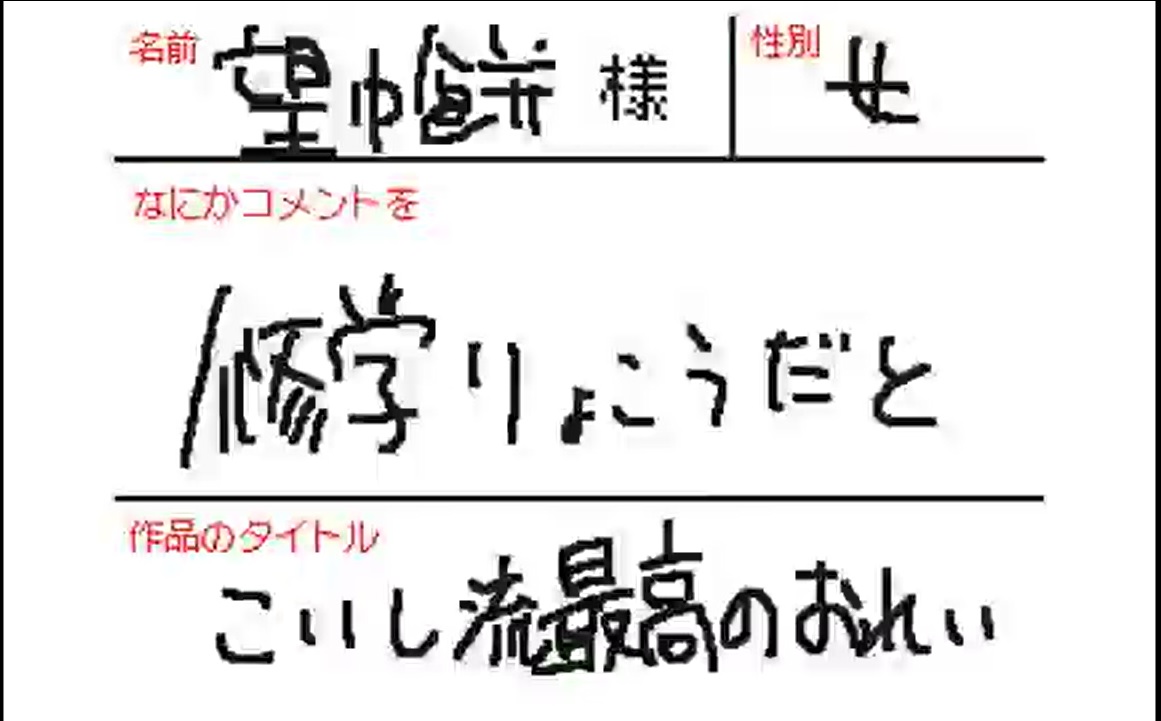 名前 望巾餠 様
性別 女
なにかコメントを
修学りょこうだと
作品のタイトル
こいし流最高のおれい